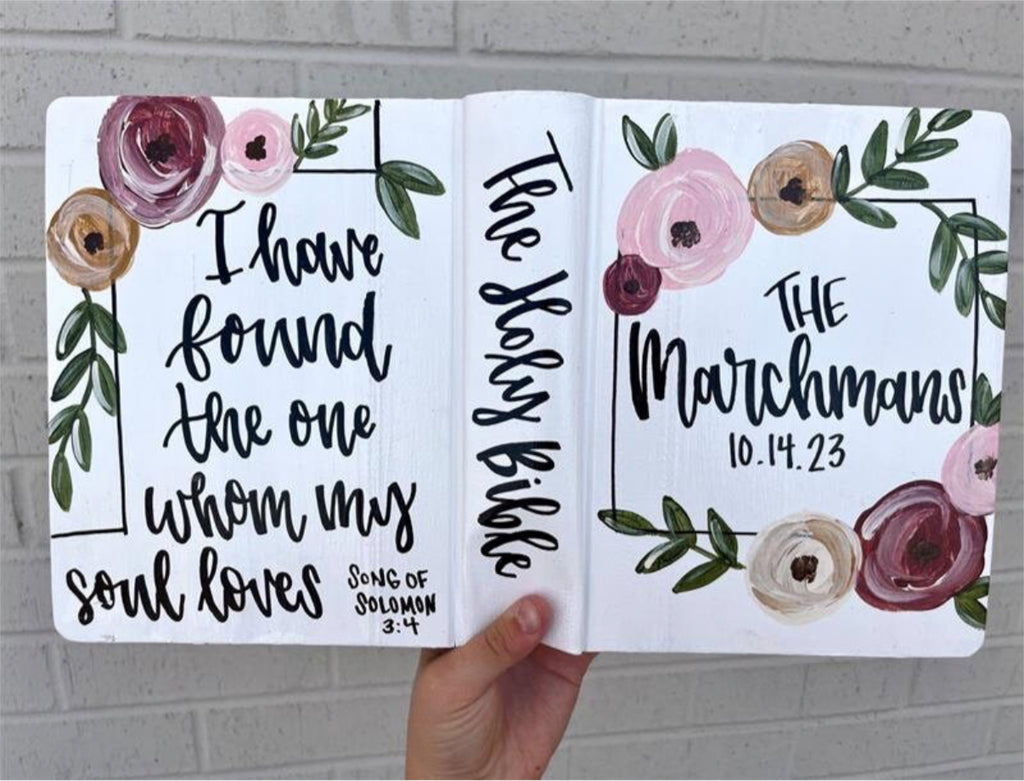 I have
found
the one
whom my
soul loves
SONG OF
SOLOMON
3:4
The Holy Bible
THE
Marchmans
10.14.23